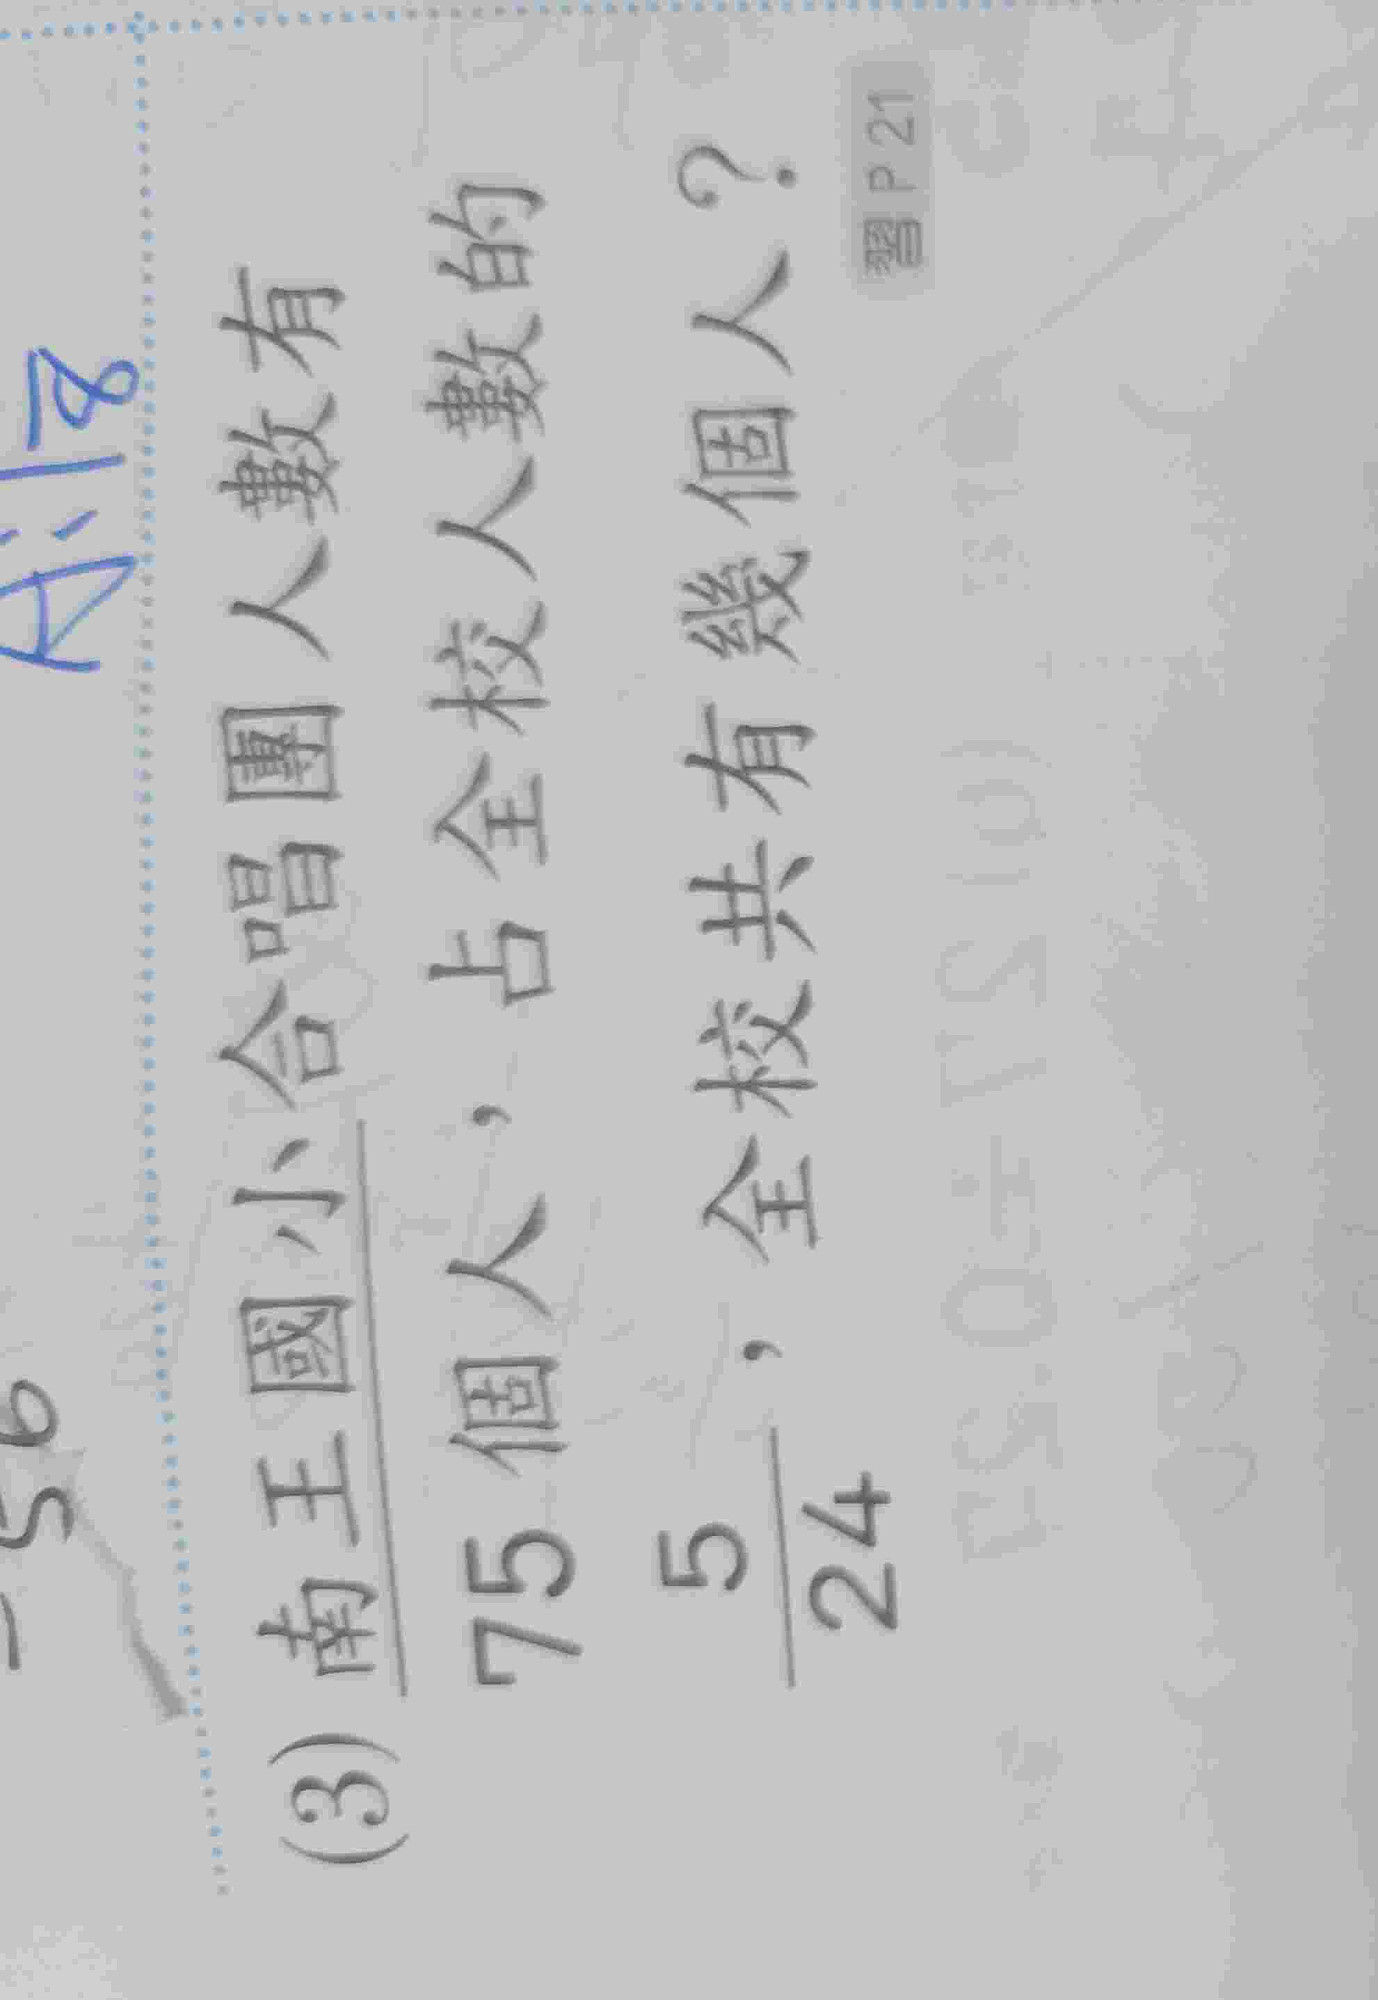 A:178
56
(3) 南王國小合唱團人數有
75個人，占全校人數的
5/24，全校共有幾個人？
習P21